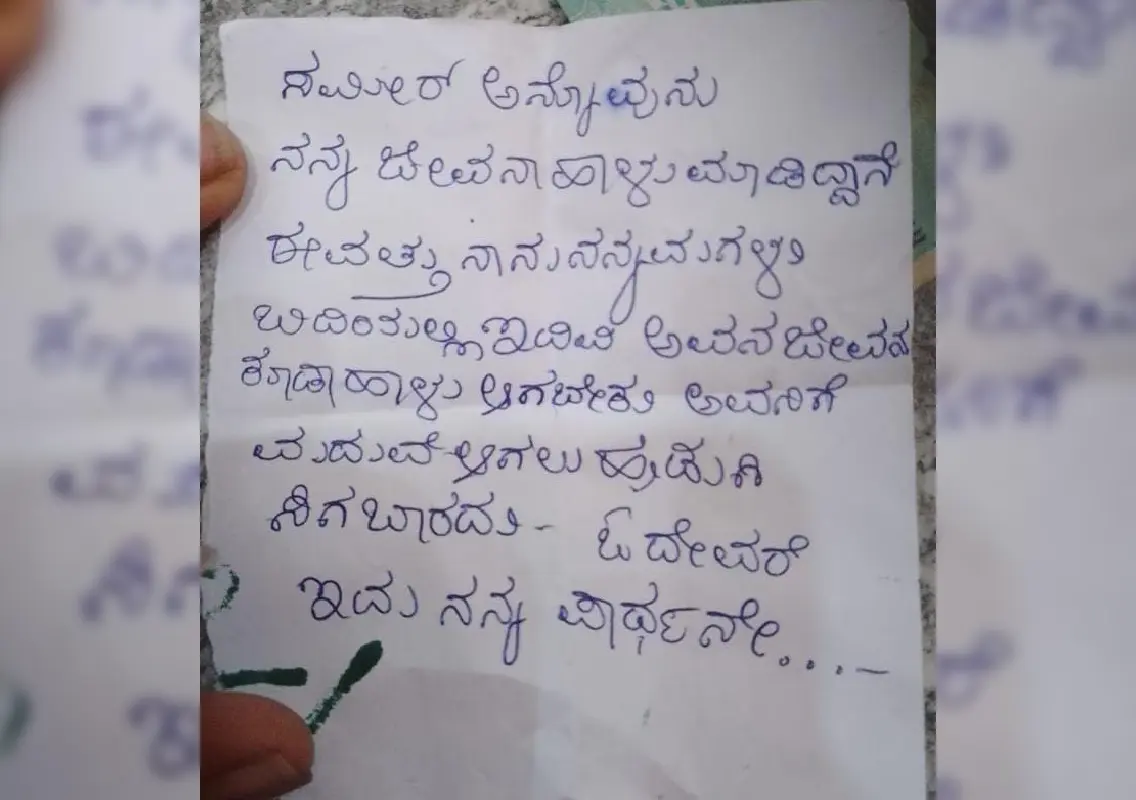 ಸಮೀರ್ ಅನ್ನೋವುನು
ನನ್ನ ಜೀವನಾ ಹಾಳು ಮಾಡಿದ್ದಾನೆ
ಈವತ್ತು ನಾನು ನನ್ನ ಮಗಳು
ಬಿದಿಯಲ್ಲಿ ಇದಿವಿ ಅವನ ಜೀವನ
ಕೂಡಾ ಹಾಳು ಆಗಬೇಕು ಅವನಿಗೆ
ಮದುವೆ ಆಗಲು ಹುಡುಗಿ
ಸಿಗಬಾರದು - ಓ ದೇವರೆ
ಇದು ನನ್ನ ಪಾರ್ಥನೇ....-